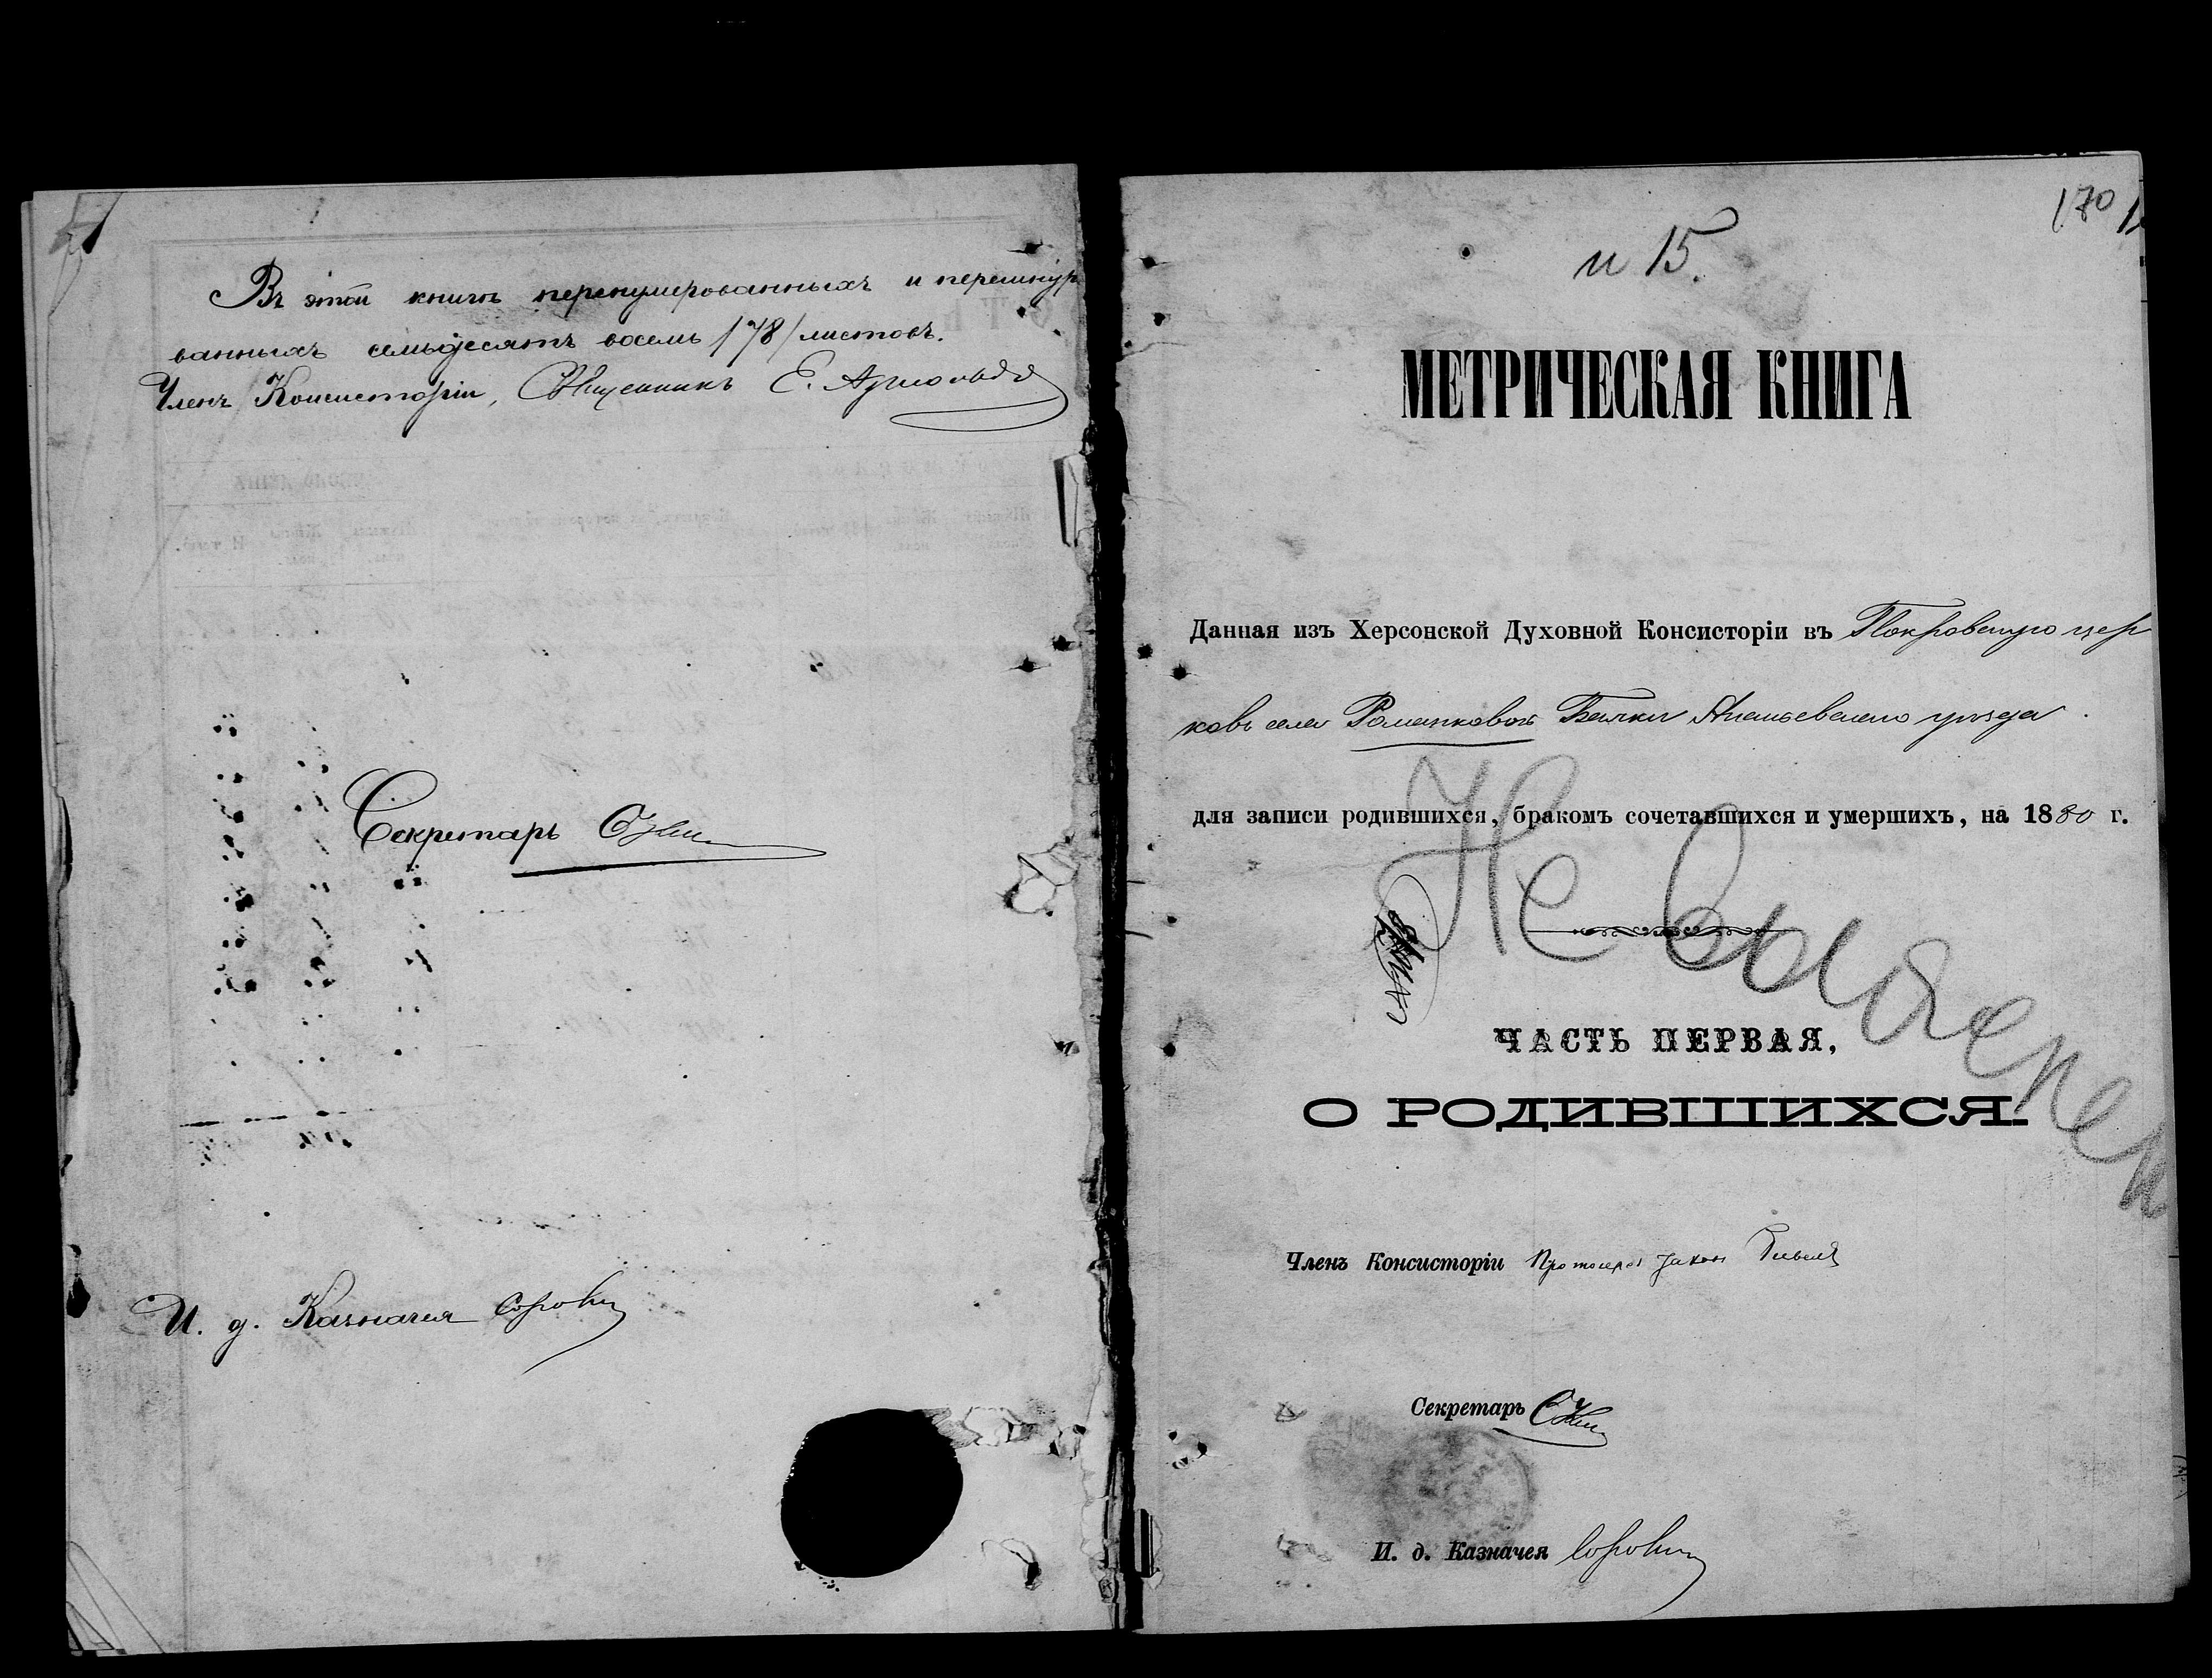 Въ этой книгѣ перенумерованныхъ и перешнуро
ванныхъ семьдесятъ восемь /78/ листовъ.
Членъ Консисторіи, Священникъ Е. Арнольдъ
Секретарь
И. д. Казначея
170
и 15.
МЕТРИЧЕСКАЯ КНИГА
Данная изъ Херсонской Духовной Консисторіи въ Покровскую цер
ковь села Романковой Балки Ананьевскаго уѣзда
для записи родившихся, бракомъ сочетавшихся и умершихъ, на 1880 г.
Не
ЧАСТЬ ПЕРВАЯ,
О РОДИВШИХСЯ.
Членъ Консисторіи Протоіерей
Секретарь
И. д. Казначея